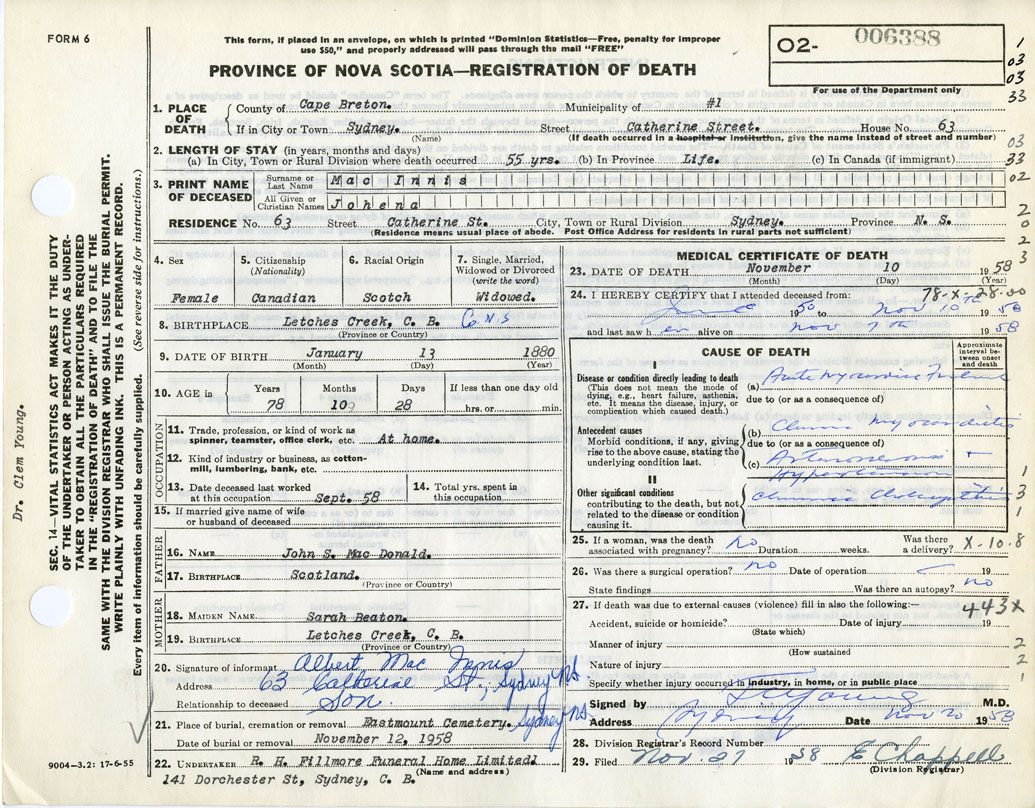 FORM 6
This form, if placed in an envelope, on which is printed "Dominion Statistics—Free, penalty for improper
use $50," and properly addressed will pass through the mail "FREE"
PROVINCE OF NOVA SCOTIA—REGISTRATION OF DEATH
O2- 006388
For use of the Department only
1
03
03
33
03
33
02
2
0
2
3
1. PLACE OF DEATH
County of Cape Breton. Municipality of #1
If in City or Town Sydney. Street Catherine Street. House No. 63
(Name) (If death occurred in a hospital or institution, give the name instead of street and number)
2. LENGTH OF STAY (in years, months and days)
(a) In City, Town or Rural Division where death occurred 55 yrs. (b) In Province Life. (c) In Canada (if immigrant)
3. PRINT NAME OF DECEASED
Surname or Last Name Mac Innis
All Given or Christian Names Johena
RESIDENCE No. 63 Street Catherine St. City, Town or Rural Division Sydney. Province N. S.
(Residence means usual place of abode. Post Office Address for residents in rural parts not sufficient)
4. Sex
Female
5. Citizenship (Nationality)
Canadian
6. Racial Origin
Scotch
7. Single, Married, Widowed or Divorced (write the word)
Widowed.
8. BIRTHPLACE Letches Creek, C. B. C.N.S
(Province or Country)
9. DATE OF BIRTH January 13 1880
(Month) (Day) (Year)
10. AGE in
Years Months Days If less than one day old
78 109 28 hrs. or min.
OCCUPATION
11. Trade, profession, or kind of work as
spinner, teamster, office clerk, etc. At home.
12. Kind of industry or business, as cotton-
mill, lumbering, bank, etc.
13. Date deceased last worked
at this occupation Sept. 58
14. Total yrs. spent in
this occupation
15. If married give name of wife
or husband of deceased
FATHER
16. NAME John S. Mac Donald.
17. BIRTHPLACE Scotland.
(Province or Country)
MOTHER
18. MAIDEN NAME Sarah Beaton.
19. BIRTHPLACE Letches Creek, C. B.
(Province or Country)
20. Signature of informant Albert Mac Innis
Address 63 Catherine St., Sydney NS.
Relationship to deceased Son
21. Place of burial, cremation or removal Eastmount Cemetery. Sydney NS
Date of burial or removal November 12, 1958
22. UNDERTAKER R. H. Fillmore Funeral Home Limited.
(Name and address)
141 Dorchester St, Sydney, C. B.
9004-3.2: 17-6-55
MEDICAL CERTIFICATE OF DEATH
23. DATE OF DEATH November 10 1958
(Month) (Day) (Year)
78-X-28-00
24. I HEREBY CERTIFY that I attended deceased from:
June 1950 to Nov 10 TH 1958
and last saw her alive on Nov 7th 1958
CAUSE OF DEATH
Approximate interval between onset and death
I
Disease or condition directly leading to death
(This does not mean the mode of
dying, e.g., heart failure, asthenia,
etc. It means the disease, injury, or
complication which caused death.)
(a) Acute Myocardial
due to (or as a consequence of)
Antecedent causes
Morbid conditions, if any, giving
rise to the above cause, stating the
underlying condition last.
(b) Chronic Myocarditis
due to (or as a consequence of)
(c) +
Hypertension
II
Other significant conditions
contributing to the death, but not
related to the disease or condition
causing it.
Chronic
1
3
1
25. If a woman, was the death
associated with pregnancy? No Duration weeks. Was there
a delivery? X-10-8
26. Was there a surgical operation? no Date of operation 19
State findings Was there an autopsy? no
27. If death was due to external causes (violence) fill in also the following:— 443X
Accident, suicide or homicide? Date of injury 19
(State which)
Manner of injury 2
(How sustained)
Nature of injury 2
Specify whether injury occurred in industry, in home, or in public place 1
Signed by Young M.D.
Address Sydney Date Nov 20 1958
28. Division Registrar's Record Number
29. Filed Nov. 27 1958 E Chappell
(Division Registrar)
Dr. Clem Young.
SEC. 14—VITAL STATISTICS ACT MAKES IT THE DUTY
OF THE UNDERTAKER OR PERSON ACTING AS UNDER-
TAKER TO OBTAIN ALL THE PARTICULARS REQUIRED
IN THE "REGISTRATION OF DEATH" AND TO FILE THE
SAME WITH THE DIVISION REGISTRAR WHO SHALL ISSUE THE BURIAL PERMIT.
WRITE PLAINLY WITH UNFADING INK. THIS IS A PERMANENT RECORD.
Every item of information should be carefully supplied. (See reverse side for instructions.)